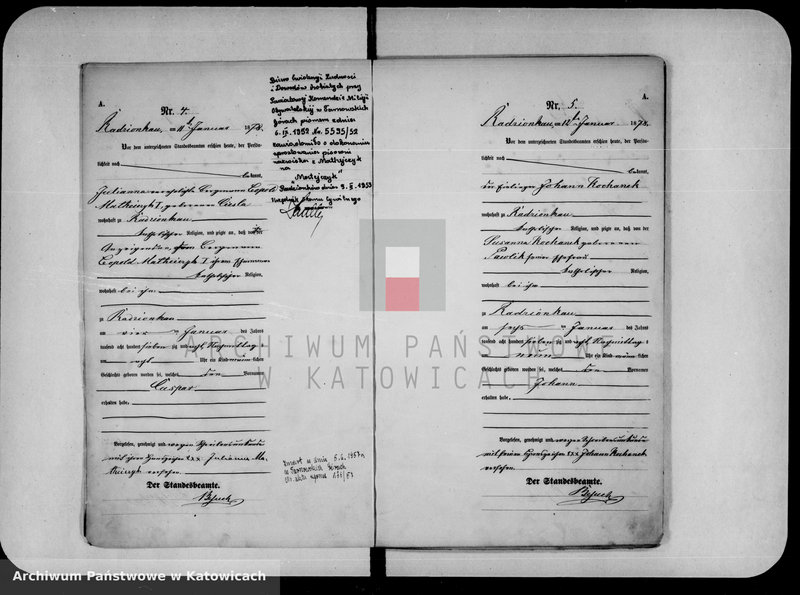 A.
Nr. 4.
Radzionkau, am 11 ten Januar 1878.
Vor dem unterzeichneten Standesbeamten erschien heute, der Persön-
lichkeit nach
bekannt,
Julianna verehelichte Bergmann Leopold
geborene Ciesla
wohnhaft zu Radzionkau
katholischer Religion, und zeigte an, daß von der
Bergmann
Leopold
katholischer Religion,
wohnhaft bei ihm
zu Radzionkau
am vier ten Januar des Jahres
tausend acht hundert sieben zig und acht Nachmittag
um acht Uhr ein Kind männlichen
Geschlechts geboren worden sei, welches den Vornamen
Caspar
erhalten habe.
Vorgelesen, genehmigt und wegen Schreibensunkunde
mit ihren Handzeichen xxx Julianna Ma-
versehen.
Der Standesbeamte.
Biuro Ewidencji Ludności
i Dowodów Osobistych przy
Powiatowej Komendzie Milicji
Obywatelskiej w Tarnowskich
Górach pismem z dnia
6.IX.1952 Nr. 5535/52
zawiadomiło o dokonaniu
sprostowania pisowni
nazwiska z Mathejczyk
na
"Matejczyk"
Radzionków dnia 9.II.1953
Urzędnik Stanu Cywilnego
zmarł w dniu 5.6.1957r
w Tarnowskich Górach
Nr. aktu zgonu
A.
Nr. 5.
Radzionkau, am 12 ten Januar 1878.
Vor dem unterzeichneten Standesbeamten erschien heute, der Persön-
lichkeit nach
bekannt,
der Häusler Johann Kochanek
wohnhaft zu Radzionkau
katholischer Religion, und zeigte an, daß von der
Susanna Kochanek geborenen
Pawlik seiner Ehefrau
katholischer Religion,
wohnhaft bei ihm
zu Radzionkau
am sechs ten Januar des Jahres
tausend acht hundert sieben zig und acht Nachmittag
um neun Uhr ein Kind männlichen
Geschlechts geboren worden sei, welches den Vornamen
Johann
erhalten habe.
Vorgelesen, genehmigt und wegen Schreibensunkunde
mit seinem Handzeichen xxx Johann Kochanek
versehen.
Der Standesbeamte.
ARCHIWUM PAŃSTWOWE
W KATOWICACH
Archiwum Państwowe w Katowicach